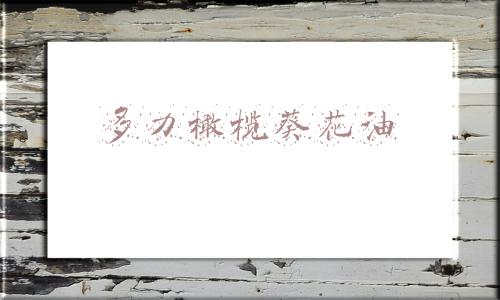 多力橄榄葵花油